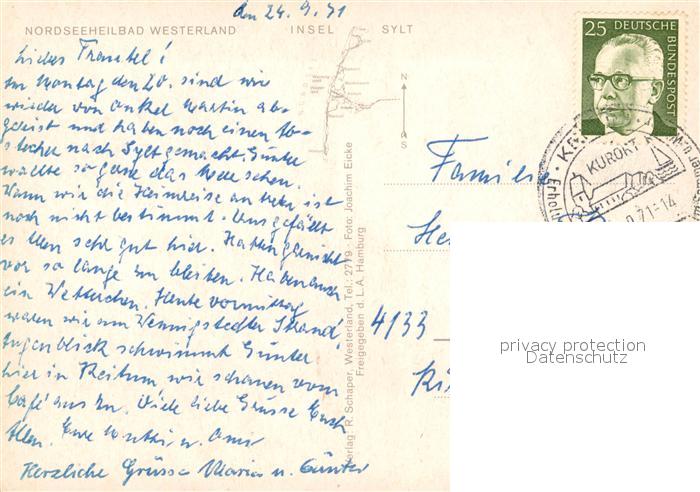 den 24.9.71
NORDSEEHEILBAD WESTERLAND INSEL SYLT
Liebes !
Am Montag den 20. sind wir
wieder von Onkel Martin ab-
gereist und haben noch einen Ab-
stecher nach Sylt gemacht. Günter
wollte so gerne das Meer sehen.
Wann wir die Heimreise antreten, ist
noch nicht bestimmt. Uns gefällt
es allen sehr gut hier. Hatten garnicht
vor so lange zu bleiben. Haben aber
ein Wetterchen. Heute vormittag
waren wir am Wennigstedter Strand.
Augenblick schwimmt Günter
hier in Keitum wir schauen vom
Café aus zu. Viele liebe Grüsse Euch
Allen. Eure u.
Herzliche Grüsse Maria u. Günter
N
S
Verlag: R. Schaper, Westerland, Tel.: 2719 · Foto: Joachim Eicke
Freigegeben d. L.A. Hamburg
25 DEUTSCHE
BUNDESPOST
KURORT
71-14
Familie
He
4133
privacy protection
Datenschutz